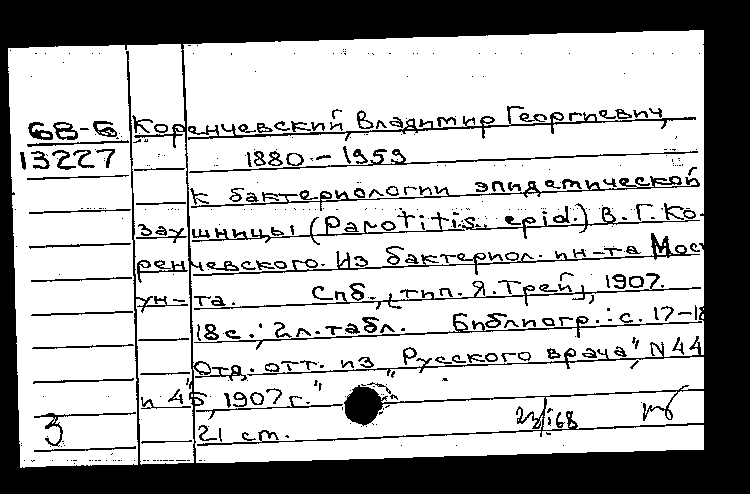 68-6 Коренчевский, Владимир Георгиевич,
13227 1880 – 1959
К бактериологии эпидемической
заушницы (Parotitis epid.) В. Г. Ко-
ренчевского. Из бактериол. ин-та Мос
ун-та. Спб., [тип. Я. Трей], 1907.
18 с.; 2 л. табл. Библиогр.: с. 17-18
Отд. отт. из „Русского врача", N 44
и 45, 1907 г."
3 21 ст. 23/I 68